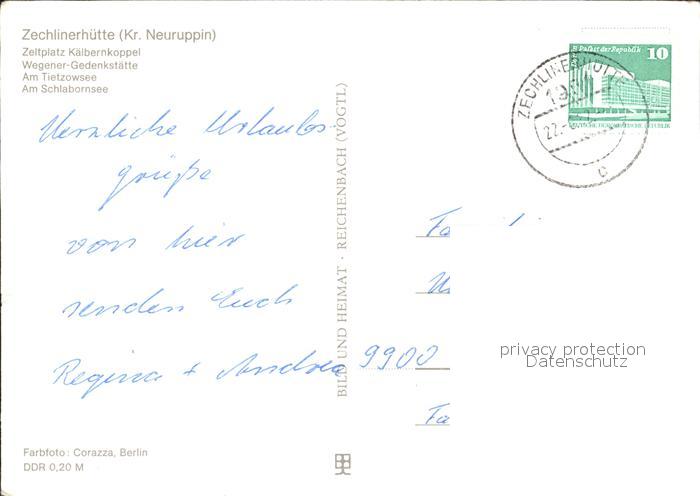 Zechlinerhütte (Kr. Neuruppin)
Zeltplatz Kälbernkoppel
Wegener-Gedenkstätte
Am Tietzowsee
Am Schlabornsee
Palast der Republik 10
DEUTSCHE DEMOKRATISCHE REPUBLIK
ZECHLINERHÜTTE
c
Herzliche Urlaubs-
grüße
von hier
senden Euch
Regina + Andrea
BILD UND HEIMAT · REICHENBACH (VOGTL)
Fa
9900
Fa
privacy protection
Datenschutz
Farbfoto: Corazza, Berlin
DDR 0,20 M